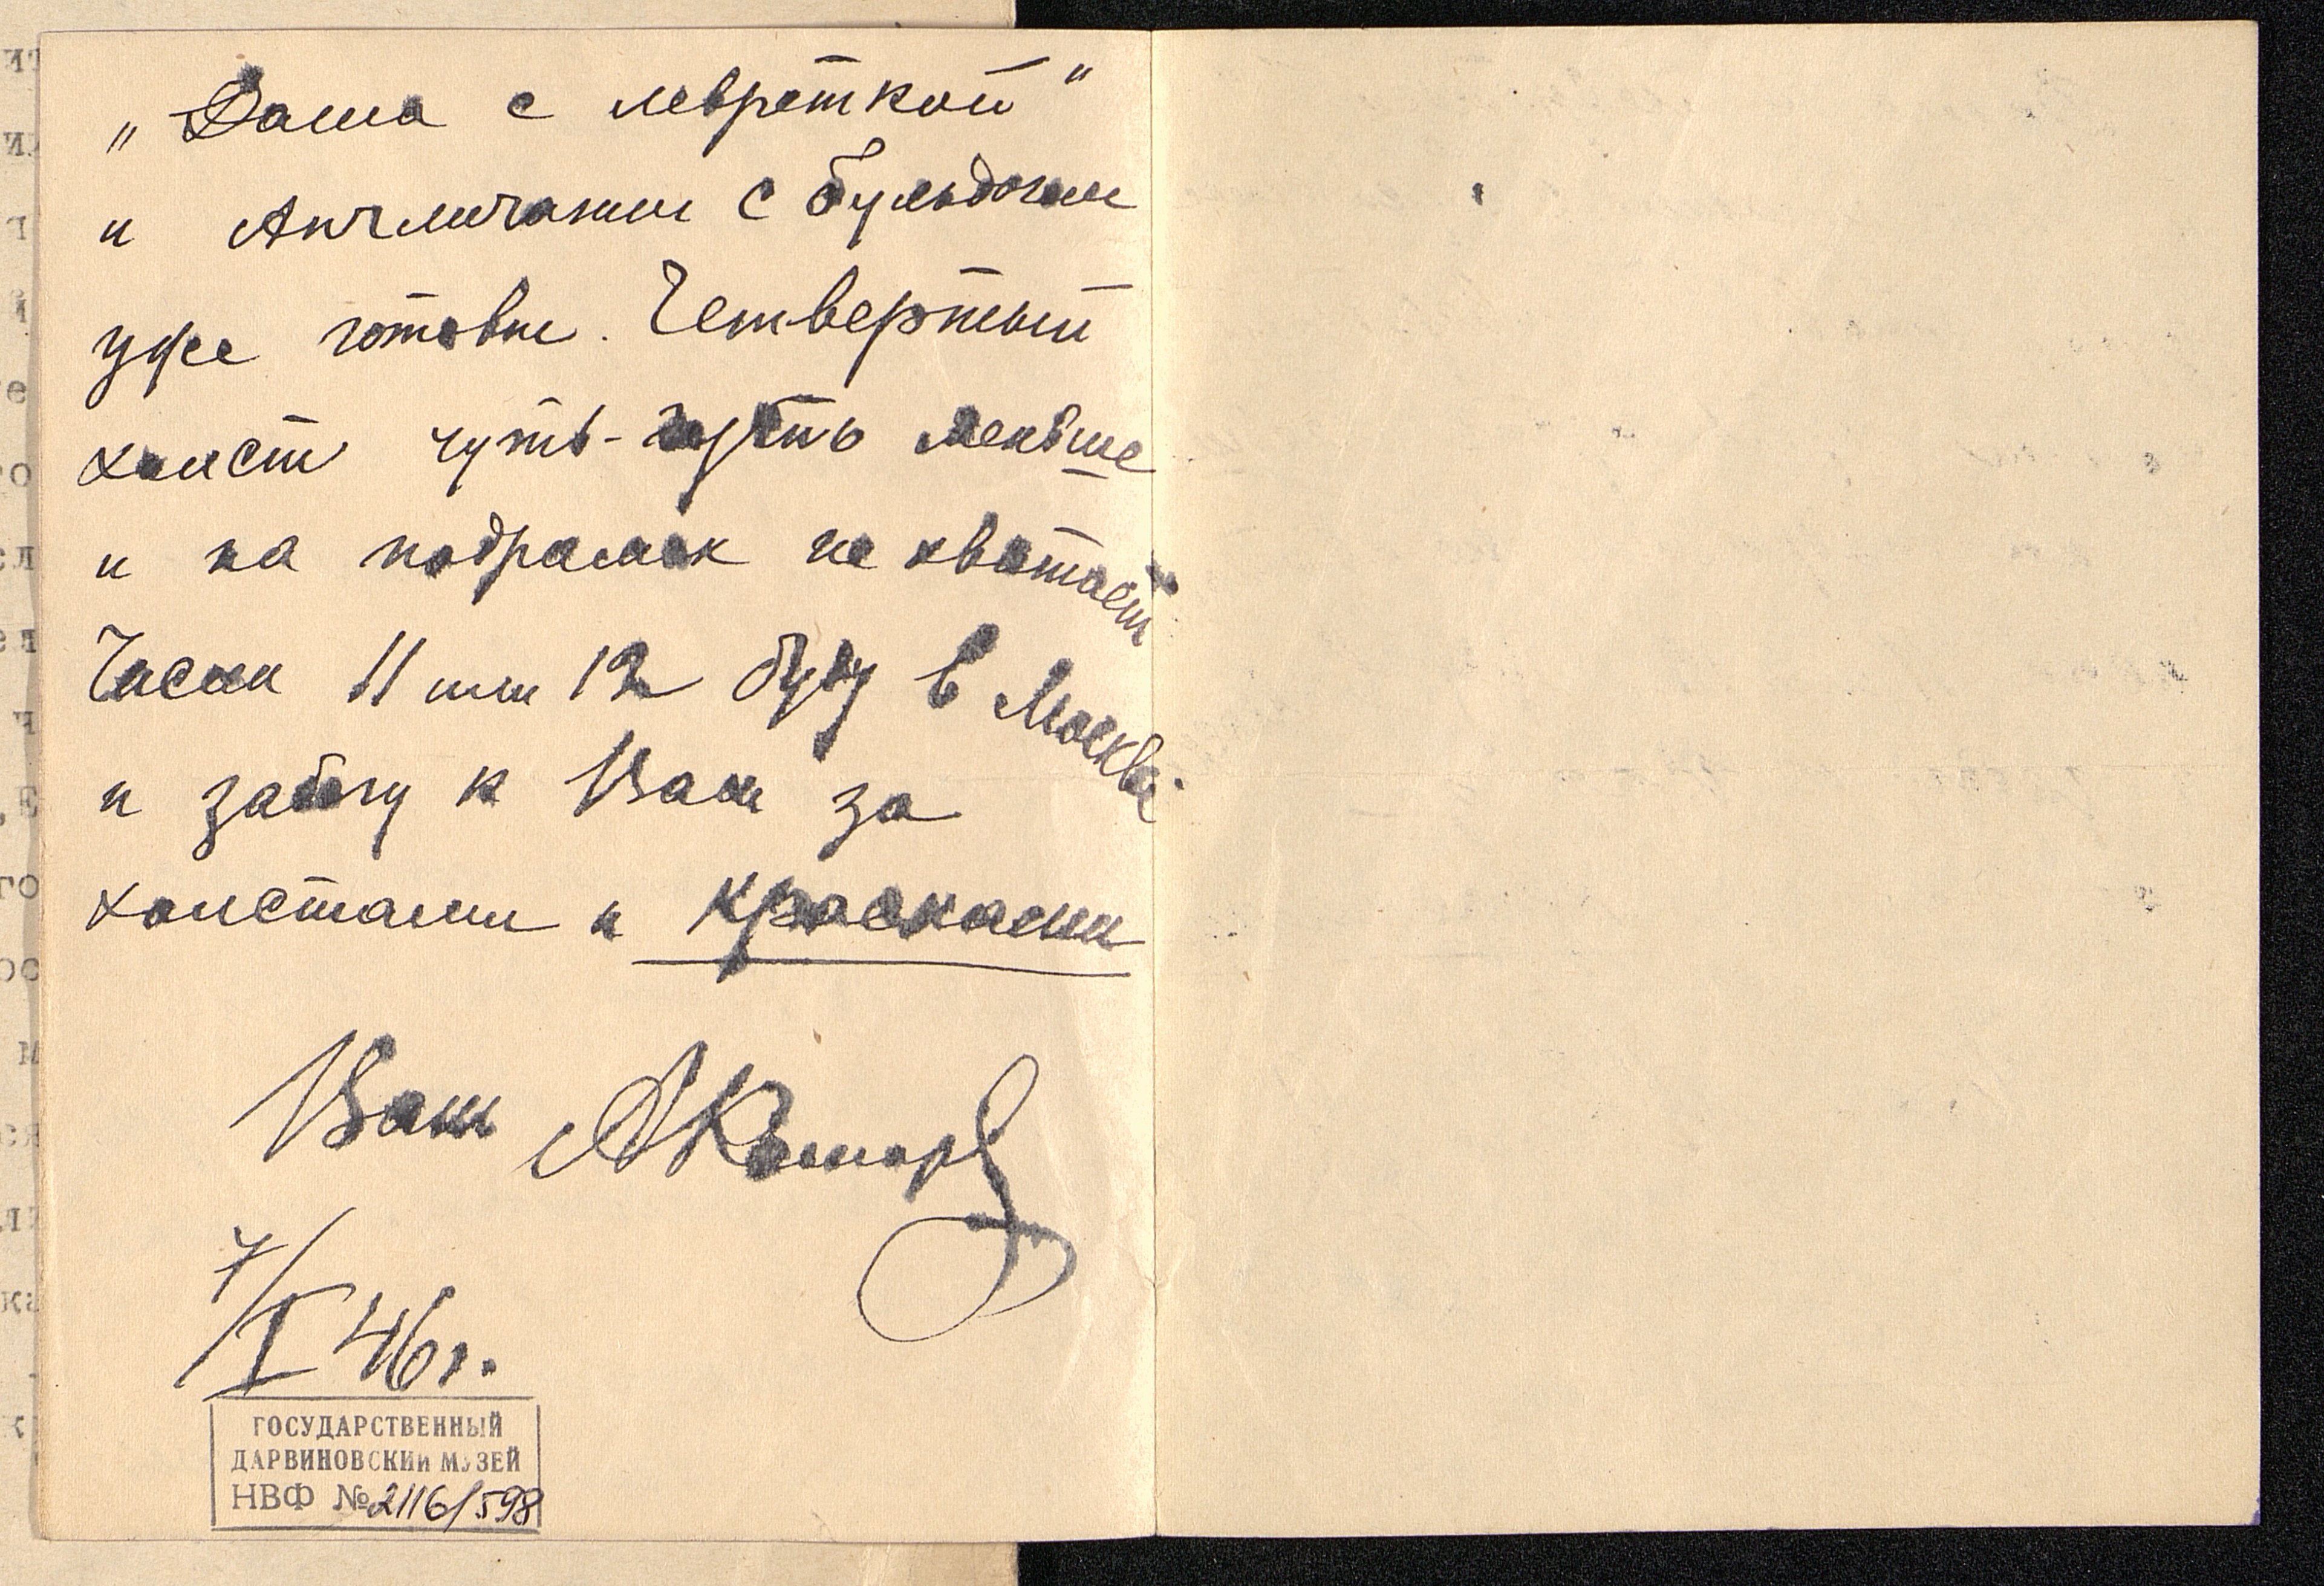 „Дама с левреткой"
и Англичанин с бульдогом
уже готовы. Четвертый
холст чуть-чуть меньше
и на подрамок не хватает
Числа 11 или 12 буду в Москве
и забегу к Вам за
холстами и красками
Ваш АКомаров
7/I 46г.
ГОСУДАРСТВЕННЫЙ
ДАРВИНОВСКИЙ МУЗЕЙ
НВФ №2116/598